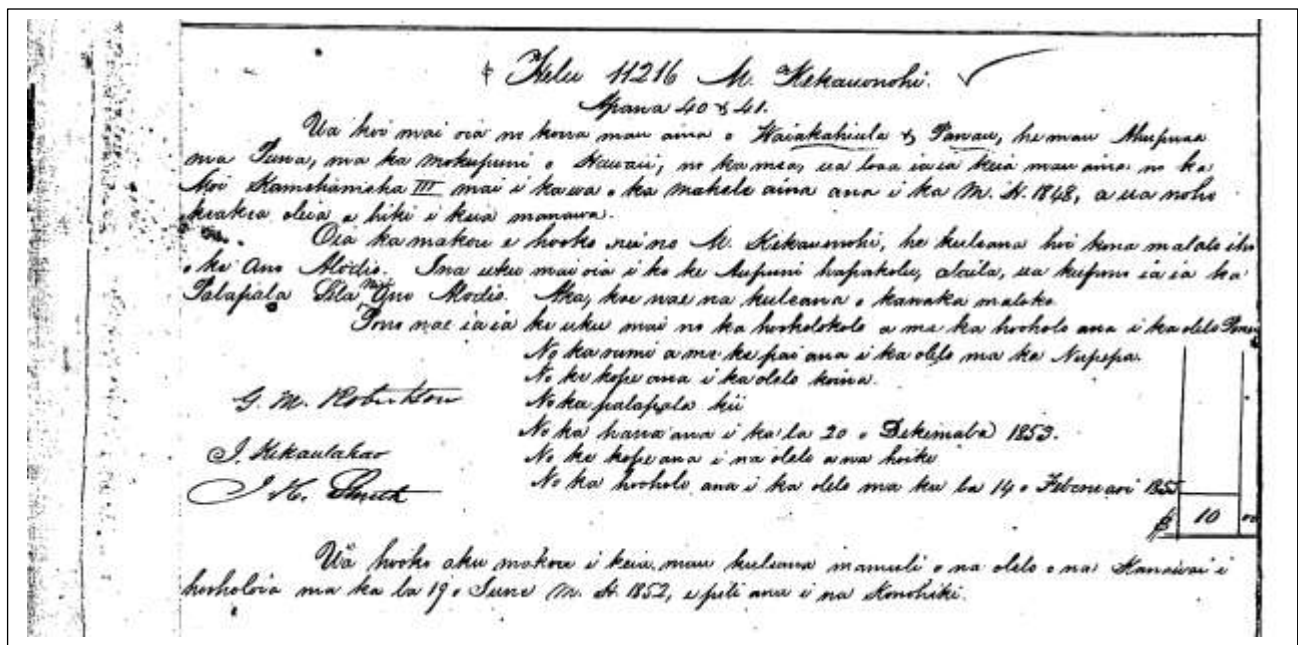 Helu 11216 M. Kekauonohi.
Apana 40 & 41.
Ua hoi mai oia no kona mau aina o Waiakahiula & Panau, he mau Ahupuaa
ma Puna, ma ka mokupuni o Hawaii, no ka mea, ua loaa ia ia keia mau aina no ka
Moi Kamehameha III mai i ka wa o ka mahele aina ana i ka M. H. 1848, a ua noho
keakea oleia a hiki i keia manawa.
Oia ka makou e hooko nei no M. Kekauonohi, he kuleana hoi kona malalo iho
o ke Ano Alodio. Ina uku mai oia i ko ke Aupuni hapakolu, alaila, ua kupono ia ia ka
Palapala Sila Nui Ano Alodio. Aka, koe nae na kuleana o kanaka maloko.
Pono nae ia ia ke uku mai no ka hookolokolo a me ka hooholo ana i ka olelo
No ka rumi a me ke pai ana i ka olelo ma ka Nupepa.
No ke kope ana i ka olelo koina.
G. M. Robertson No ka palapala kii
No ka hana ana i ka la 20 o Dekemaba 1853.
J. Kekaulahao No ke kope ana i na olelo a na hoike
J. H. Smith No ka hooholo ana i ka olelo ma ka la 14 o Feberuari 1855
$ 10 00
Ua hooko aku makou i keia mau kuleana mamuli o na olelo o na Kanawai i
hooholoia ma ka la 19 o Iune M. H. 1852, e pili ana i na Konohiki.